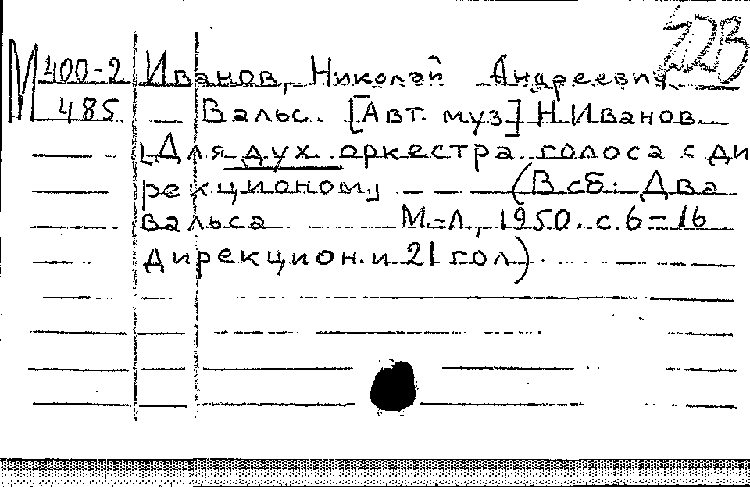 М 400-2 Иванов, Николай Андреевич
485 Вальс. [Авт. муз] Н Иванов
[Для дух. оркестра. голоса с ди
рекционому (В сб: Два
вальса М.-Л, 1950. с. 6-16
дирекцион. и 21 гол).